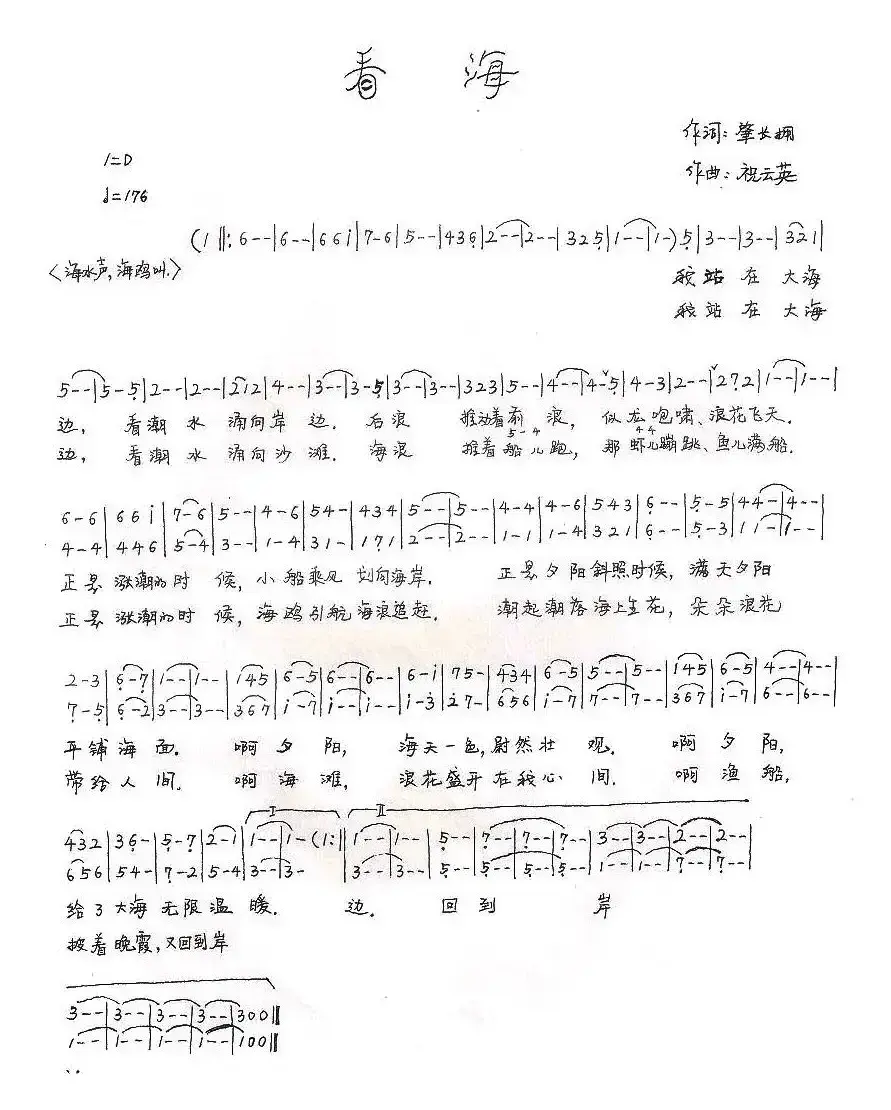 看 海
作词：肇长拥
1=D
作曲：祝云英
♩=176
(1 ‖: 6 - - | 6 - - | 6 6 i | 7 - 6 | 5 - - | 4 3 6 | 2 - - | 2 - - | 3 2 5 | 1 - - | 1 - ) 5 | 3 - - | 3 - - | 3 2 1 |
〈海水声，海鸥叫.〉
我站在大海
我站在大海
5 - - | 5 - 5 | 2 - - | 2 - - | 2 1 2 | 4 - - | 3 - - | 3 - 5 | 3 - - | 3 - - | 3 2 3 | 5 - - | 4 - - | 4 - 5 | 4 - 3 | 2 - - | 2 7 2 | 1 - - | 1 - - |
边，看潮水涌向岸边. 后浪推动着前浪，似龙咆啸、浪花飞天.
5 - 4 4 4
边，看潮水涌向沙滩. 海浪推着船儿跑，那虾儿蹦跳、鱼儿满船.
6 - 6 | 6 6 i | 7 - 6 | 5 - - | 4 - 6 | 5 4 - | 4 3 4 | 5 - - | 5 - - | 4 - 4 | 4 - 6 | 5 4 3 | 6 - - | 5 - 5 | 4 4 - | 4 - - |
4 - 4 | 4 4 6 | 5 - 4 | 3 - - | 1 - 4 | 3 1 - | 1 7 1 | 2 - - | 2 - - | 1 - 1 | 1 - 4 | 3 2 1 | 6 - - | 5 - 3 | 1 1 - | 1 - - |
正是涨潮的时候，小船乘风划向海岸. 正是夕阳斜照时候，满天夕阳
正是涨潮的时候，海鸥引航海浪追赶. 潮起潮落海上生花，朵朵浪花
2 - 3 | 6 - 7 | 1 - - | 1 - - | 1 4 5 | 6 - 5 | 6 - - | 6 - - | 6 - i | 7 5 - | 4 3 4 | 6 - 5 | 5 - - | 5 - - | 1 4 5 | 6 - 5 | 4 - - | 4 - - |
7 - 5 | 6 - 2 | 3 - - | 3 - - | 3 6 7 | i - 7 | i - - | i - - | i - 3 | 2 7 - | 6 5 6 | i - 7 | 7 - - | 7 - - | 3 6 7 | i - 7 | 6 - - | 6 - - |
平铺海面. 啊夕阳，海天一色，蔚然壮观. 啊夕阳，
带给人间. 啊海滩，浪花盛开在我心间. 啊渔船，
I II
4 3 2 | 3 6 - | 5 - 7 | 2 - 1 | 1 - - | 1 - (1 :‖ 1 - - | 1 - - | 5 - - | 7 - - | 7 - - | 7 - - | 3 - - | 3 - - | 2 - - | 2 - - |
6 5 6 | 5 4 - | 7 - 2 | 5 - 4 | 3 - - | 3 - ‖ 3 - - | 3 - - | 5 - - | 5 - - | 5 - - | 5 - - | 1 - - | 1 - - | 7 - - | 7 - - |
给了大海无限温暖. 边. 回到岸
披着晚霞，又回到岸
3 - - | 3 - - | 3 - - | 3 - - | 3 0 0 ‖
1 - - | 1 - - | 1 - - | 1 - - | 1 0 0 ‖